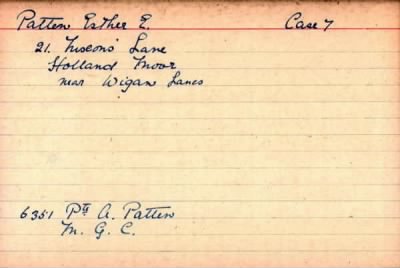 Patten Esther E. Case 7
21. Tuscons' Lane
Holland Moor
near Wigan Lancs
6351 Pte A. Patten
M. G. C.